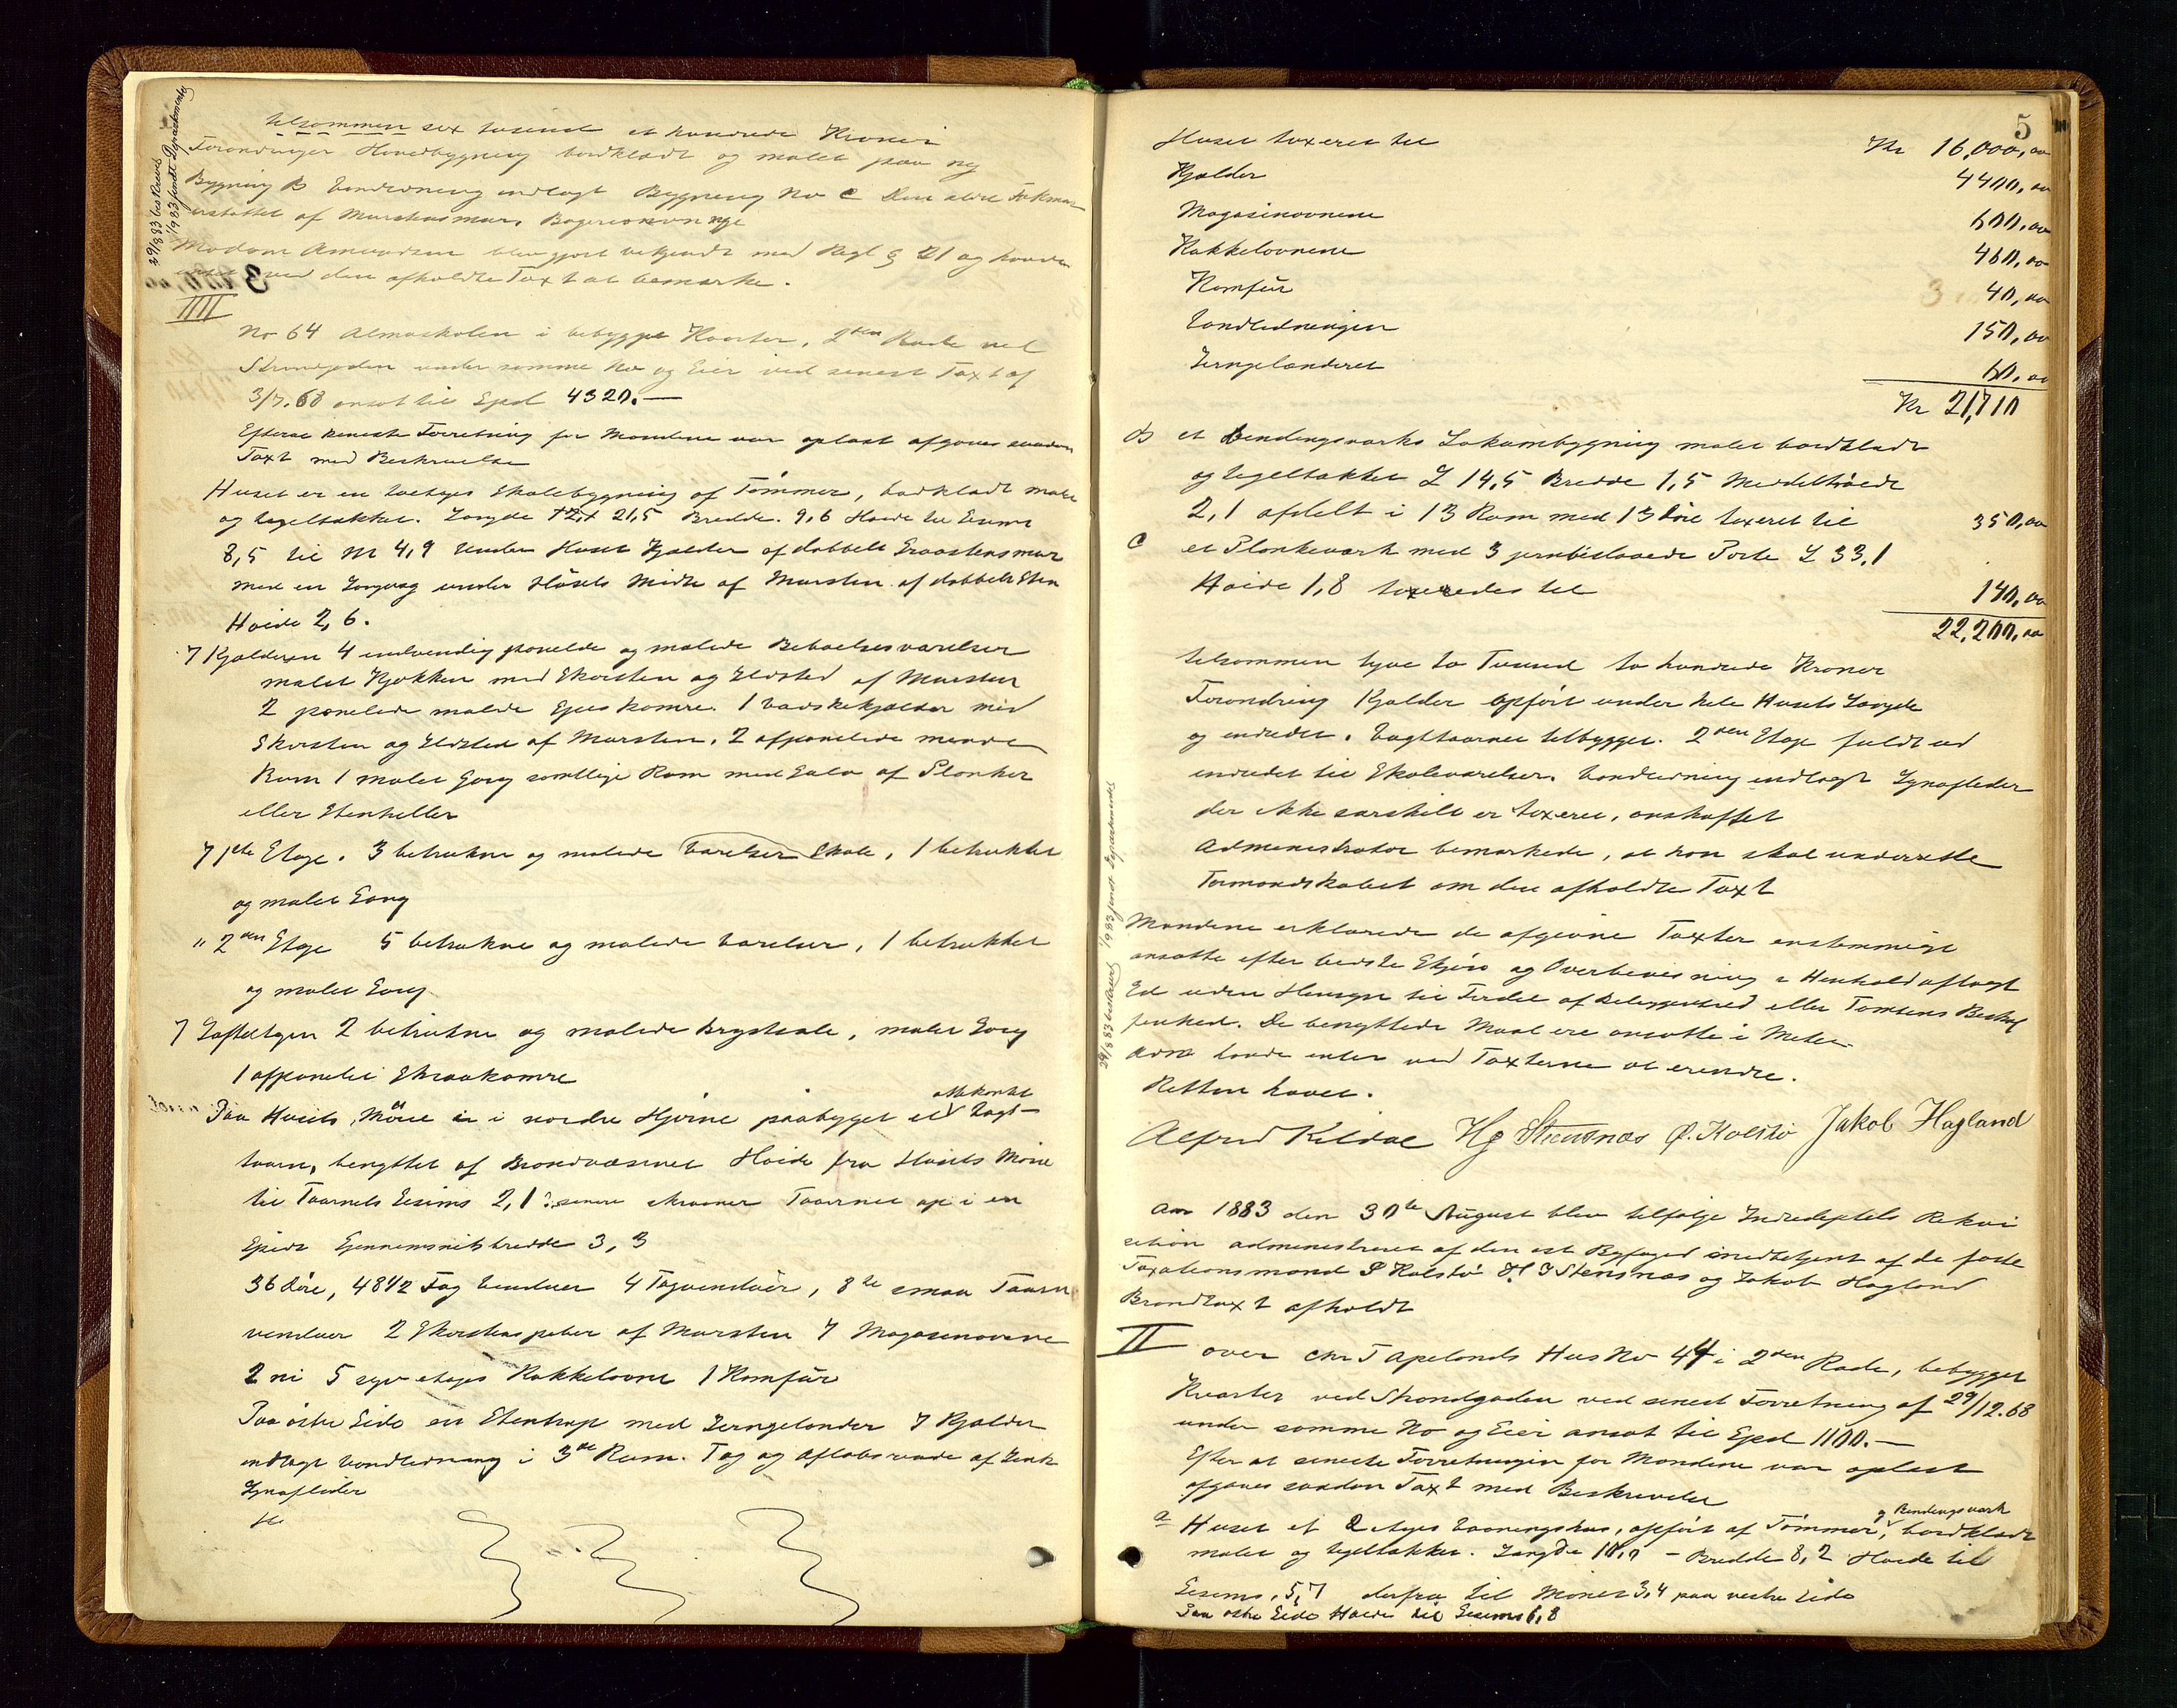 29/8 83 beskrevet
1/9 83 sendt Departementet
tilsammen sex tusende et hundrede Kroner
Forandringer Hovedbygning bordklædt og malet paa ny
Bygning B Vandledning indlagt Bygning No C Den ældre
erstattet af Murstensmur, Bagerieovn nye
Madam Amundsen blev gjort bekjendt med Regl § 21 og havde
intet ved den afholdte Taxt at bemærke.
IIII
No 64 Almueskolen i bebygget Kvarter, 2den Rade ved
Strandgaden under samme No og Eier ved senest Taxt af
3/7.68 ansat til Spd 4320.—
Efterat seneste Forretning for Mændene var oplæst afgaves saadan
Taxt med Beskrivelse
Huset er en toetages Skolebygning af Tømmer, bordklædt malet
og tegltækket. Længde 21,5 Bredde. 9,6 Høide til Gesims
8,5 til M 4,9 Under Huset Kjælder af dobbelt Graastensmur
med en Langvæg under Husets Midte af Mursten af dobbelt Sten
Høide 2,6.
I Kjælderen 4 indvendig panelede og malede Beboelsesværelser
malet Kjøkken med Skorsten og Ildsted af Mursten
2 panelede malede Spiskamre. 1 Vadskekjælder med
Skorsten og Ildsted af Mursten. 2 afpanelede mindre
Rum 1 malet Gang samtlige Rum med Gulv af Planker
eller Stenheller
I 1ste Etage. 3 betrukne og malede Værelser Skole, 1 betrukket
og malet Gang
" 2den Etage 5 betrukne og malede Værelser, 1 betrukket
og malet Gang
I Loftsetagen 2 betrukne og malede Brystsale, malet Gang
1 afpanelet Skraakamre
Paa Husets Møne er i nordre Hjørne paabygget et ottekantet Vagt-
taarn, benyttet af Brandvæsenet Høide fra Husets Møne
til Taarnets Gesims 2,1 senere skraaner Taarnet op i en
Spids Gjennemsnitsbredde 3,3
36 Døre, 48 1/2 Fag Vinduer 4 Tagvinduer, 8te smaa Taarn
vinduer 2 Skorstenspiber af Mursten 7 Magasinovne
2 ni 5 syv etages Kakkelovne 1 Komfür
Paa østre Side en Stentrap med Jerngelænder I Kjælder
indlagt Vandledning i 3de Rum. Tag og Afløbsrende af Zink
Lynafleder
5
Huset taxeret til Kr 16,000,00
Kjælder 4400,00
Magasinovnene 600,00
Kakkelovnene 460,00
Komfür 40,00
Vandledningen 150,00
Jerngelænderet 60,00
Kr 21,710
b et Bendingsværks Lokumbygning malet bordklædt
og tegltækket L 14,5 Bredde 1,5 Middelhøide
2,1 afdelt i 13 Rum med 13 Døre taxeret til 350,00
c et Plankeværk med 3 jernbeslaaede Porte L 33,1
Høide 1,8 taxeredes til 140,00
22,200,00
tilsammen tyve to Tusind to hundrede Kroner
Forandring Kjælder opført under hele Husets Længde
og indredet. Vagttaarnet tilbygget. 2den Etage fuldt ud
indredet til Skoleværelser. Vandledning indlagt Lynafleder
der ikke særskilt er taxeret, anskaffet
Administrator bemærkede, at han skal underrette
Formandskabet om den afholdte Taxt
29/8 83 beskrevet 1/9 83 sendt Departementet
Mændene erklærede de afgivne Taxter enstemmigt
ansatte efter bedste Skjøn og Overbevisning i Henhold aflagt
Ed uden Hensyn til Fordel af Beliggenhed eller Tomtens Beskaf
fenhed. De benyttede Maal ere ansatte i Meter.
Adm havde intet ved Taxterne at erindre.
Retten hævet.
Alfred Kildal Hg Stensnæs Ø. Kolstø Jakob Hagland
Aar 1883 den 30te August blev tilfølge Indredeptets Rekvi
sition administreret af den cst Byfoged medbetjent af de faste
Taxationsmænd P Kolstø H G Stensnæs og Jakob Hagland
Brandtaxt afholdt
II
over Chr T Apelands Hus No 44 i 2den Rade, bebygget
Kvarter ved Strandgaden ved senest Forretning af 29/12.68
under samme No og Eier ansat til Spd 1100.—
Efter at seneste Forretningen for Mændene var oplæst
afgaves saadan Taxt med Beskrivelse
a Huset et 2 etages Vaaningshus, opført af Tømmer og Bendingsværk, bordklædt
malet og tegltækket. Længde 10,0 – Bredde 8,2 Høide til
Gesims, 5,7 derfra til Mønet 3,4 paa vestre Side
Paa østre Side Høide til Gesims 6,8